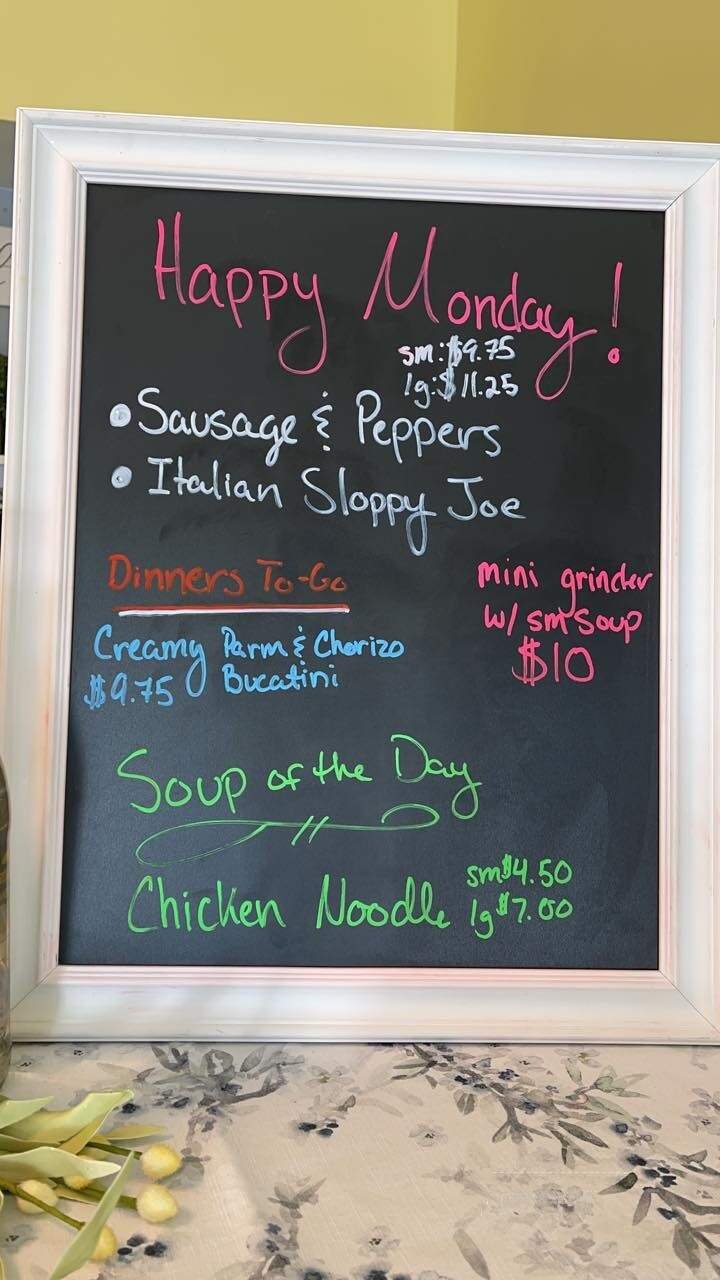 Happy Monday!
sm: $9.75
lg: $11.25
• Sausage & Peppers
• Italian Sloppy Joe
Dinners To-Go
mini grinder
w/ sm soup
$10
Creamy Parm & Chorizo
$9.75 Bucatini
Soup of the Day
Chicken Noodle
sm $4.50
lg $7.00